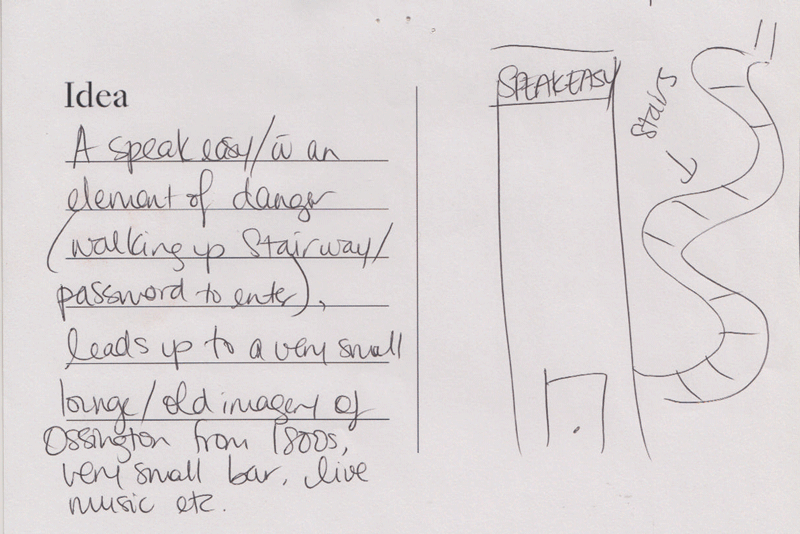 Idea
A speak easy/w an
element of danger
(walking up stairway/
password to enter),
leads up to a very small
lounge/old imagery of
Ossington from 1800s,
very small bar, live
music etc.
SPEAKEASY
Stairs